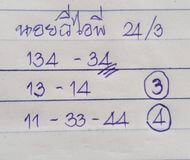 นอยดีไอพี 24/3
134 - 34
13 - 14 3
11 - 33 - 44 4